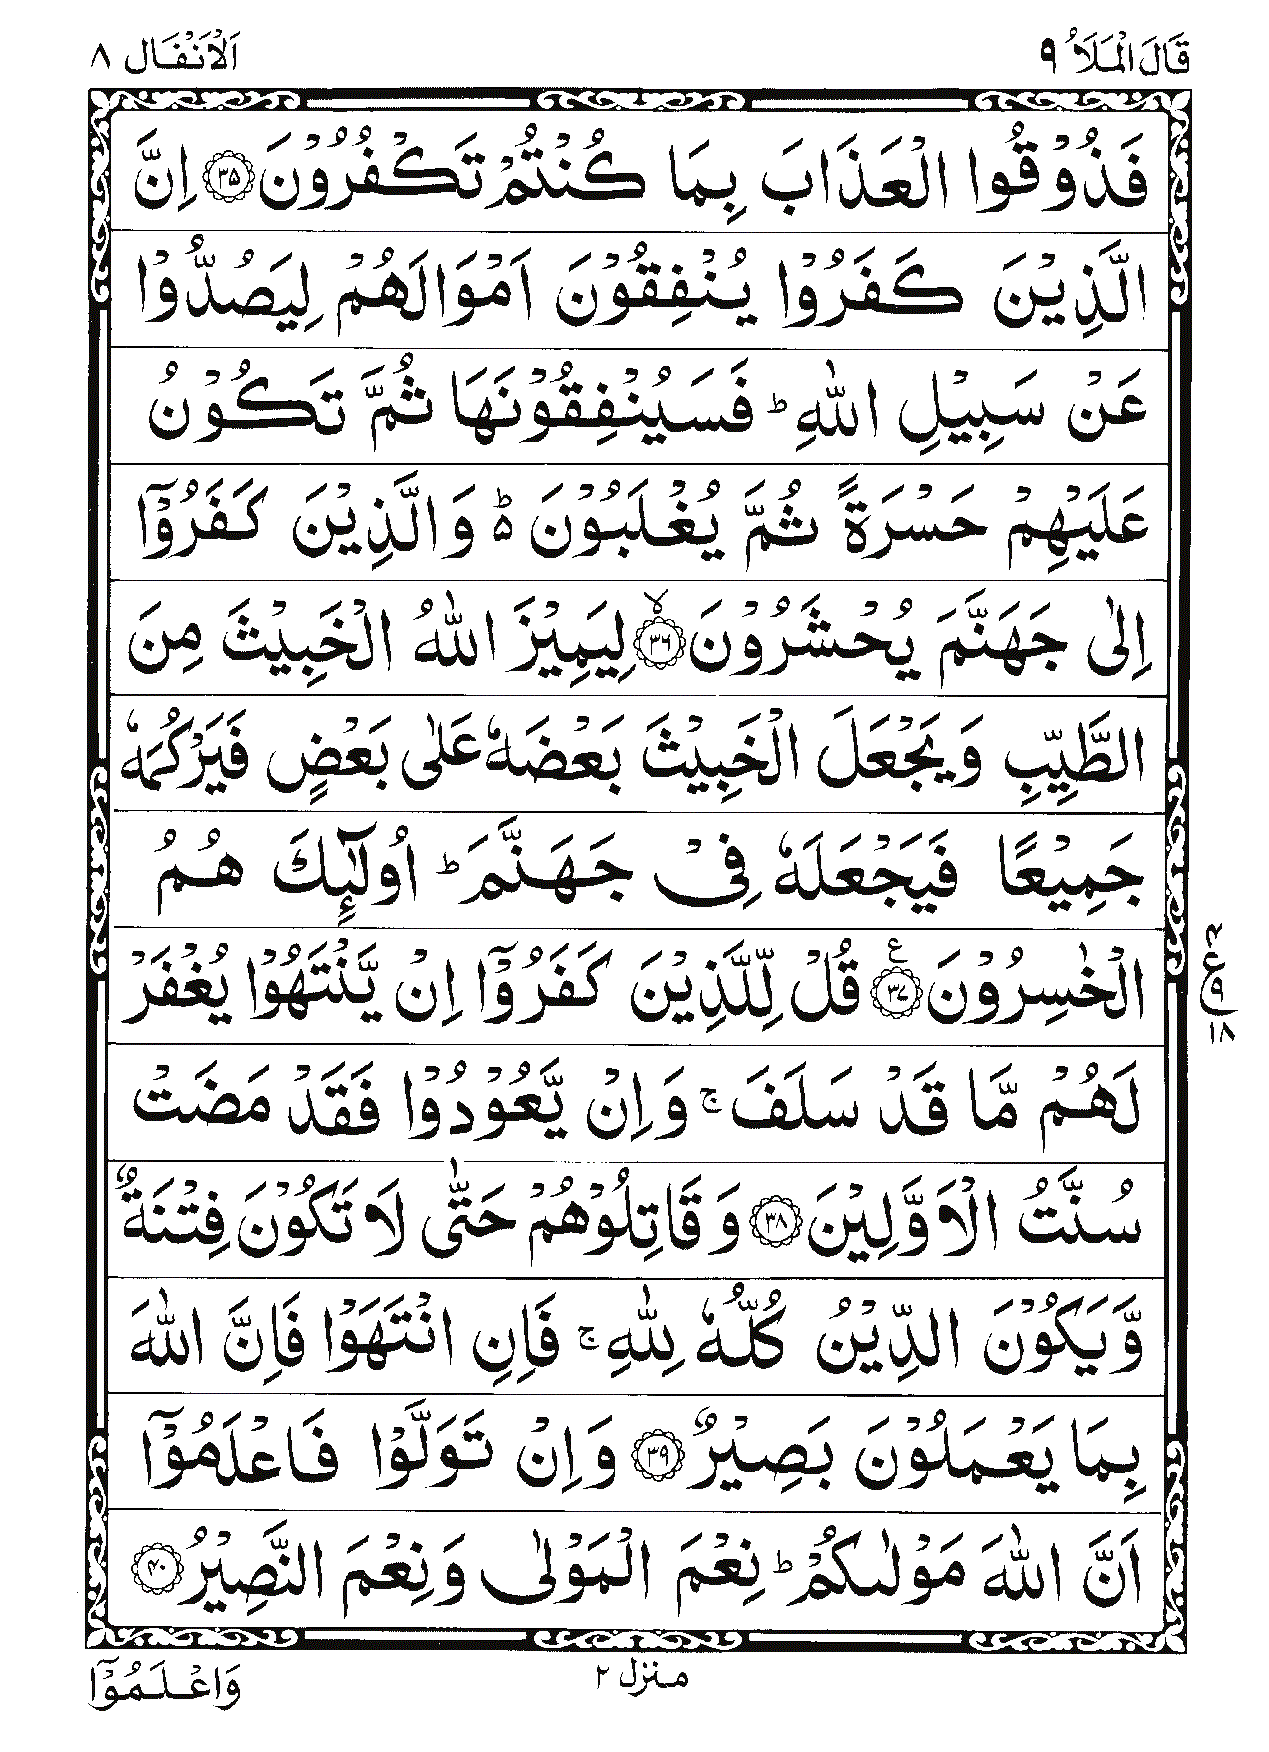 قَالَ الْمَلَاُ ۹
اَلْاَنْفَال ۸
فَذُوْقُوا الْعَذَابَ بِمَا كُنْتُمْ تَكْفُرُوْنَ ﴿۳۵﴾ اِنَّ
الَّذِيْنَ كَفَرُوْا يُنْفِقُوْنَ اَمْوَالَهُمْ لِيَصُدُّوْا
عَنْ سَبِيْلِ اللّٰهِ ؕ فَسَيُنْفِقُوْنَهَا ثُمَّ تَكُوْنُ
عَلَيْهِمْ حَسْرَةً ثُمَّ يُغْلَبُوْنَ ۬ؕ وَالَّذِيْنَ كَفَرُوْۤا
اِلٰى جَهَنَّمَ يُحْشَرُوْنَ ﴿۳۶﴾ۙ لِيَمِيْزَ اللّٰهُ الْخَبِيْثَ مِنَ
الطَّيِّبِ وَيَجْعَلَ الْخَبِيْثَ بَعْضَهٗ عَلٰى بَعْضٍ فَيَرْكُمَهٗ
جَمِيْعًا فَيَجْعَلَهٗ فِيْ جَهَنَّمَ ؕ اُولٰٓئِكَ هُمُ
الْخٰسِرُوْنَ ﴿۳۷﴾ ع قُلْ لِّلَّذِيْنَ كَفَرُوْۤا اِنْ يَّنْتَهُوْا يُغْفَرْ
لَهُمْ مَّا قَدْ سَلَفَ ۚ وَاِنْ يَّعُوْدُوْا فَقَدْ مَضَتْ
سُنَّتُ الْاَوَّلِيْنَ ﴿۳۸﴾ وَقَاتِلُوْهُمْ حَتّٰى لَا تَكُوْنَ فِتْنَةٌ
وَّيَكُوْنَ الدِّيْنُ كُلُّهٗ لِلّٰهِ ۚ فَاِنِ انْتَهَوْا فَاِنَّ اللّٰهَ
بِمَا يَعْمَلُوْنَ بَصِيْرٌ ﴿۳۹﴾ وَاِنْ تَوَلَّوْا فَاعْلَمُوْۤا
اَنَّ اللّٰهَ مَوْلٰىكُمْ ؕ نِعْمَ الْمَوْلٰى وَنِعْمَ النَّصِيْرُ ﴿۴۰﴾
۴
ع
۹
۱۸
منزل ۲
وَاعْلَمُوْۤا